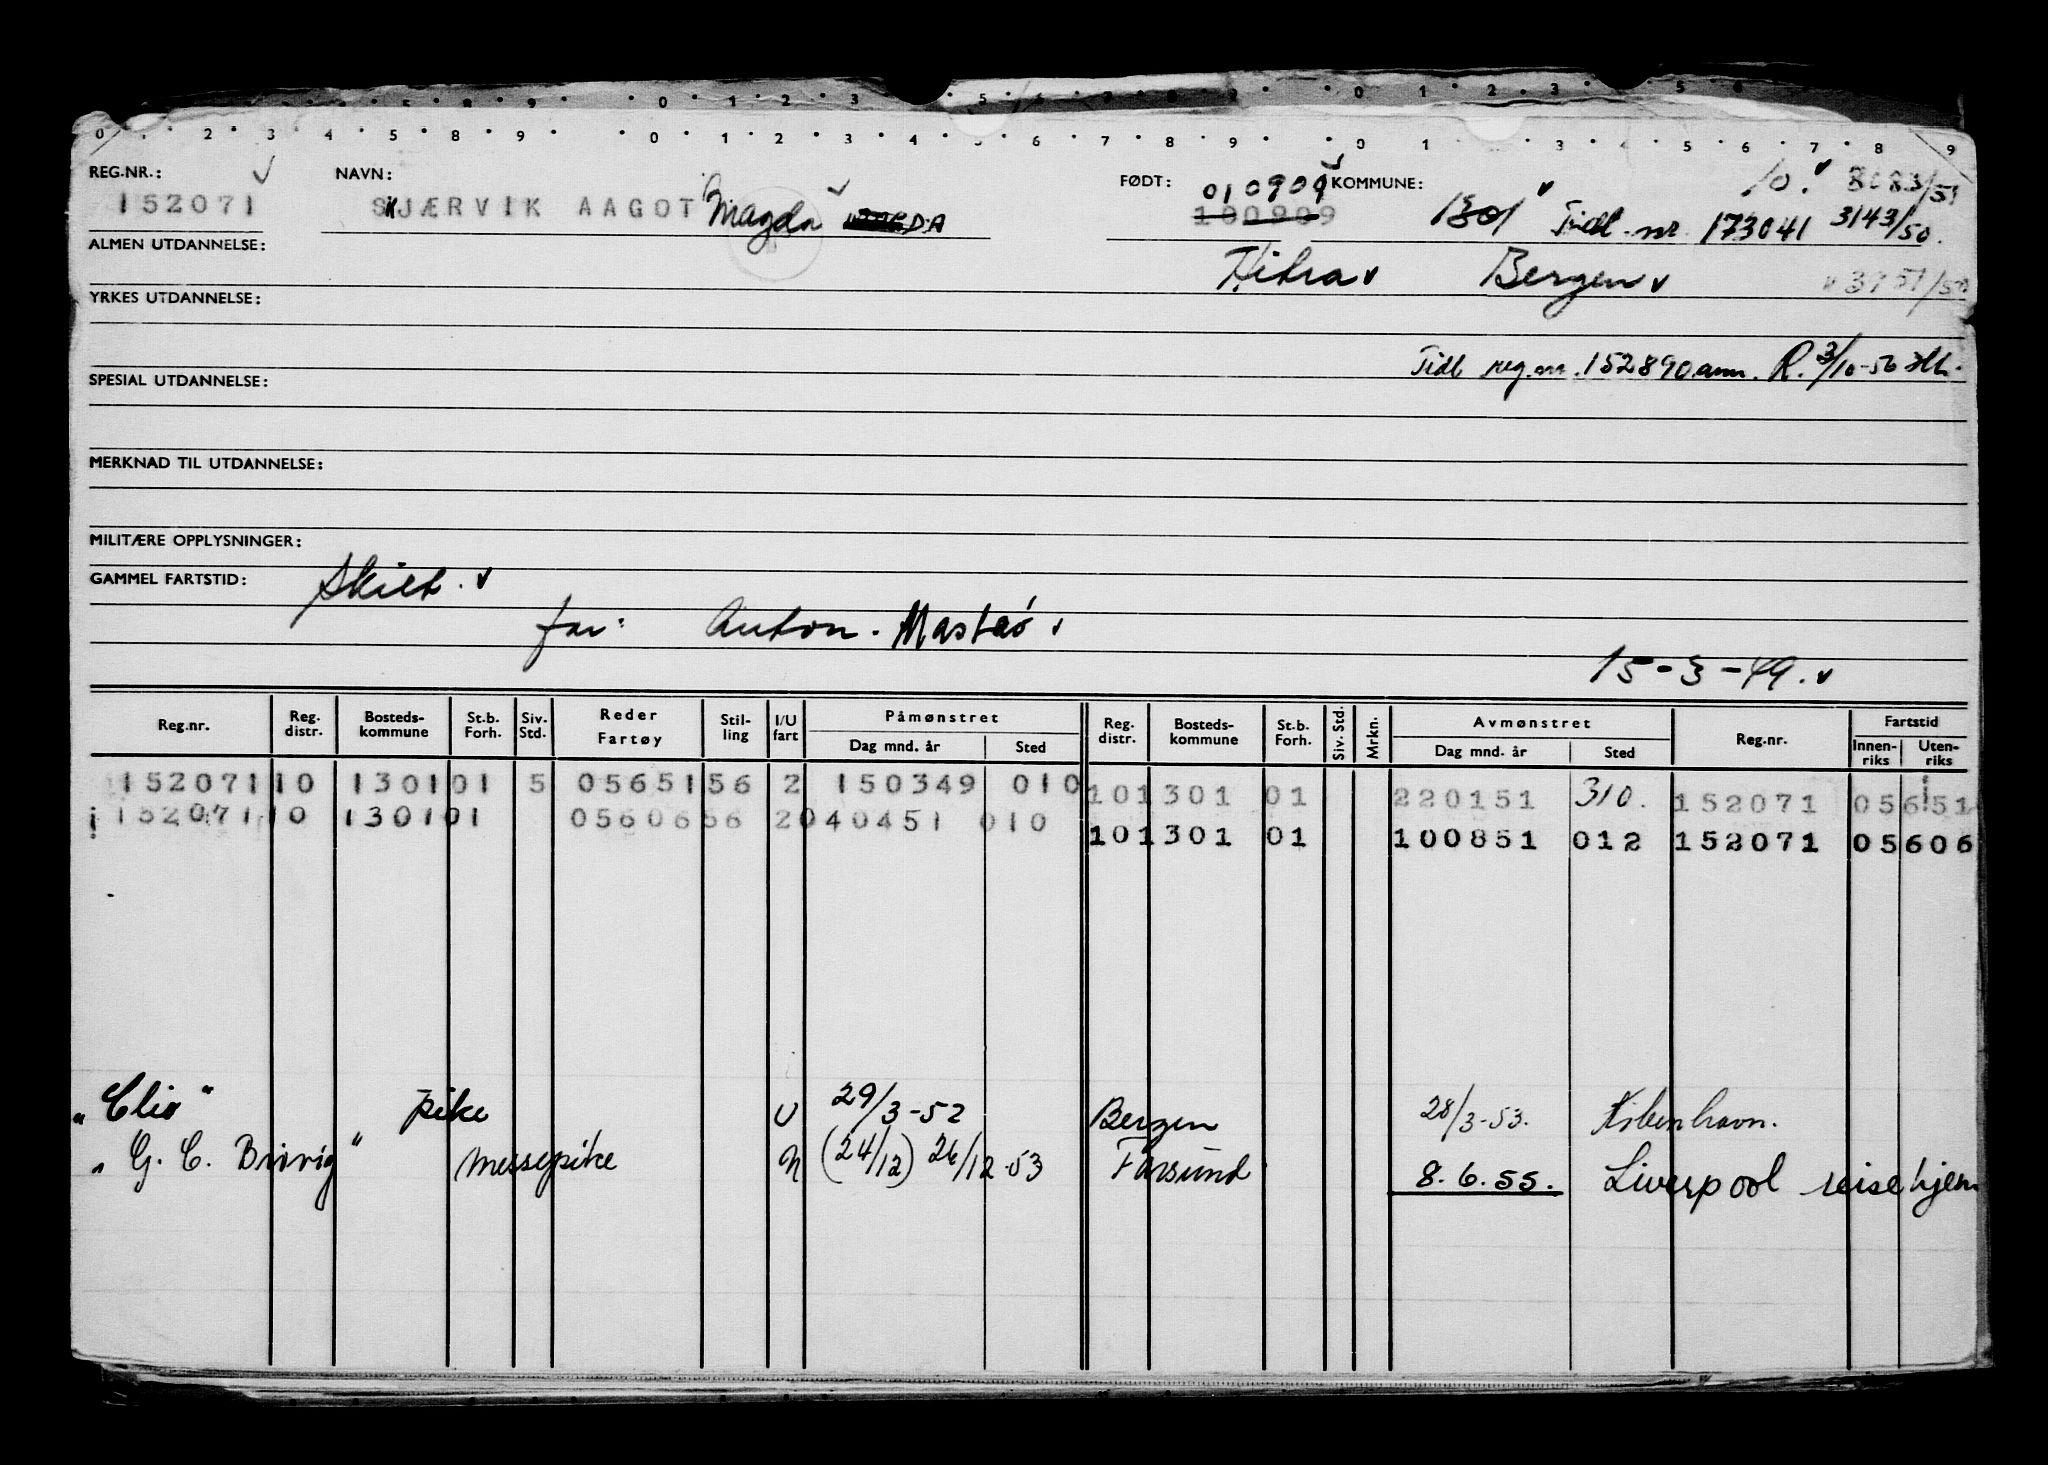 0 . . 2 . 3 . 4 . 5 . 8 . 9 . . 0 . 1 . 2 . 3 . 4 . 5 . 6 . 7 . 8 . 9 . . 0 . 1 . . 3 . 4 . 5 . 6 . 7 . 8 . 9
REG.NR.: NAVN: FØDT: 010909 KOMMUNE: 10. 8083/51
152071 SKJÆRVIK AAGOT Magda 100909 1301 Tidl. nr. 173041 3143/50.
ALMEN UTDANNELSE:
Hitra Bergen 3751/50
YRKES UTDANNELSE:
Tidl reg.nr. 152890 ann. R. 3/10-56
SPESIAL UTDANNELSE:
MERKNAD TIL UTDANNELSE:
MILITÆRE OPPLYSNINGER:
GAMMEL FARTSTID: Skilt.
far: Anton. Mastad
15-3-49.
Reg.nr. Reg. distr. Bosteds-kommune St.b. Forh. Siv. Std. Reder Fartøy Stil-ling I/U fart Påmønstret Dag mnd. år Sted Reg. distr. Bosteds-kommune St.b. Forh. Siv. Std. Mrkn. Avmønstret Dag mnd. år Sted Reg.nr. Fartstid Innen-riks Uten-riks
152071 10 1301 01 5 05651 56 2 150349 010 10 1301 01 220151 310. 152071 05651
152071 10 1301 01 05606 56 2 040451 010 10 1301 01 100851 012 152071 05606
"Clio" pike U 29/3-52 Bergen 28/3-53. København.
"G. C. Brøvig" messepike N (24/12) 26/12-53 Farsund 8.6.55. Liverpool reise hjem